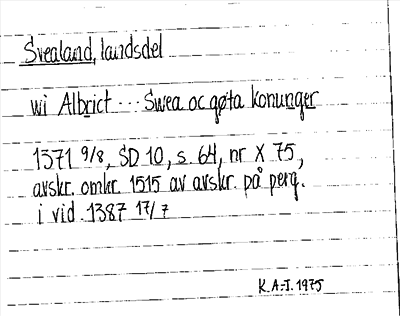 Svealand, landsdel
wi Albrict ... Swea oc gøta konunger
1371 9/8, SD 10, s. 64, nr X 75,
avskr. omkr. 1515 av avskr. på perg.
i vid. 1387 17/7
K.A.-I. 1975